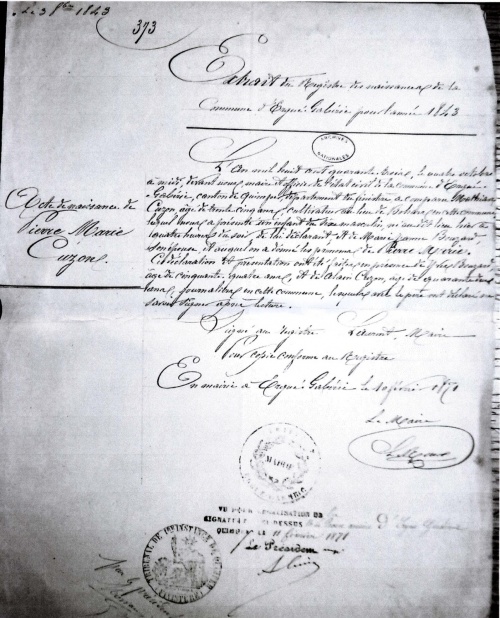 Le 3 8bre 1843
373
Extrait du Registre des naissances de la
Commune d'Ergué-Gabéric pour l'année 1843
ARCHIVES
NATIONALES
L'an mil huit cent quarante trois, le quatre octobre
à midi, devant nous, maire et officier de l'état civil de la commune d'Ergué-
Gabéric, canton de Quimper, département du finistère a comparu
Cuzon, âgé de trente cinq ans, cultivateur au lieu de en cette commune
lequel nous a présenté un enfant du sexe masculin, né
quatre heures du soir de lui déclarant et de Marie Jeanne
son épouse et auquel on a donné les prénoms de Pierre Marie.
Cette déclaration et présentation ont été faites en présence de
âgé de cinquante quatre ans, et de Alain Cuzon, âgé de quarante
ans, journaliers en cette commune, lesquels avec le père ont déclaré ne
savoir signer après lecture.
Acte de naissance de
Pierre Marie
Cuzon
Signé au registre Laurent, Maire
Pour copie conforme au Registre
En mairie à Ergué Gabéric le 10 février 1871
Le Maire
MAIRIE
VU POUR LÉGALISATION DE
SIGNATURE CI-DESSUS
QUIMPER LE 11 février 1871
Le Président
TRIBUNAL DE 1ERE INSTANCE DE QUIMPER
(FINISTERE)